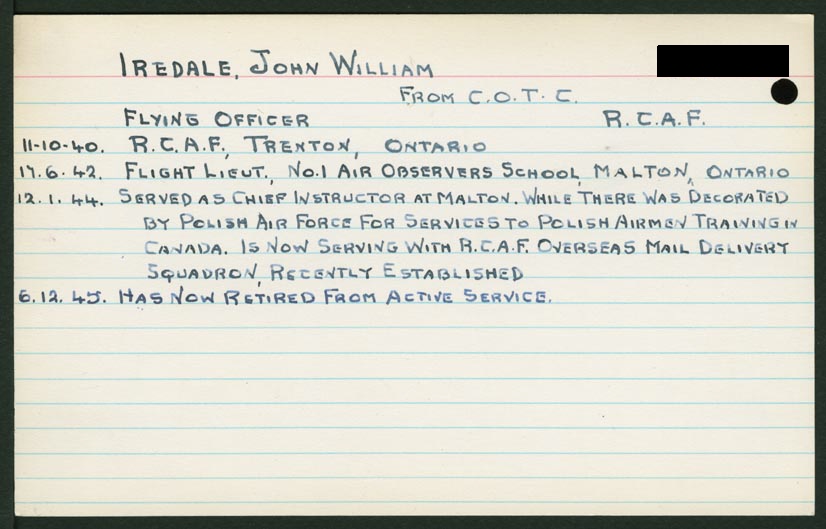 IREDALE, JOHN WILLIAM
FROM C.O.T.C.
FLYING OFFICER R.C.A.F.
11-10-40. R.C.A.F., TRENTON, ONTARIO
17.6.42. FLIGHT LIEUT., NO.1 AIR OBSERVERS SCHOOL, MALTON, ONTARIO
12.1.44. SERVED AS CHIEF INSTRUCTOR AT MALTON. WHILE THERE WAS DECORATED
BY POLISH AIR FORCE FOR SERVICES TO POLISH AIRMEN TRAINING IN
CANADA. IS NOW SERVING WITH R.C.A.F. OVERSEAS MAIL DELIVERY
SQUADRON, RECENTLY ESTABLISHED
6.12.45. HAS NOW RETIRED FROM ACTIVE SERVICE.